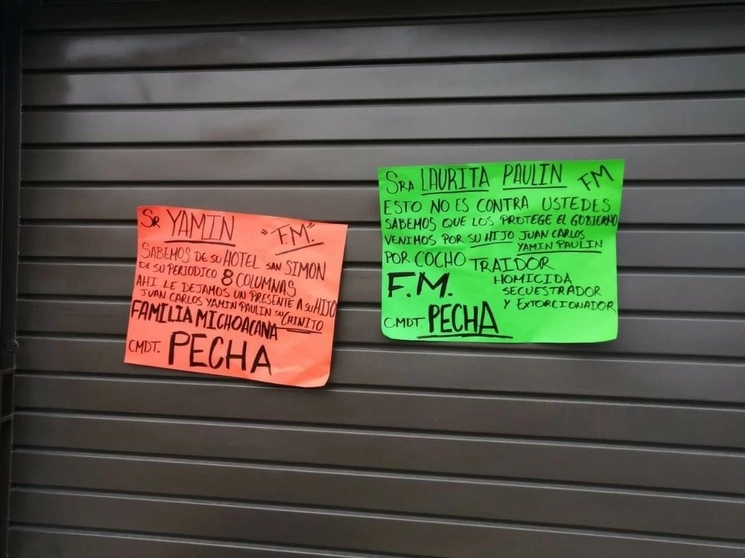 Sr YAMIN "F.M."
SABEMOS DE SU HOTEL SAN SIMON
DE SU PERIODICO 8 COLUMNAS
AHI LE DEJAMOS UN PRESENTE A SU HIJO
JUAN CARLOS YAMIN PAULIN SU CHINITO
FAMILIA MICHOACANA
CMDT. PECHA
SRA LAURITA PAULIN FM
ESTO NO ES CONTRA USTEDES
SABEMOS QUE LOS PROTEGE EL GOBIERNO
VENIMOS POR SU HIJO JUAN CARLOS
YAMIN PAULIN
POR COCHO TRAIDOR
HOMICIDA
F.M. SECUESTRADOR
Y EXTORCIONADOR
CMDT. PECHA